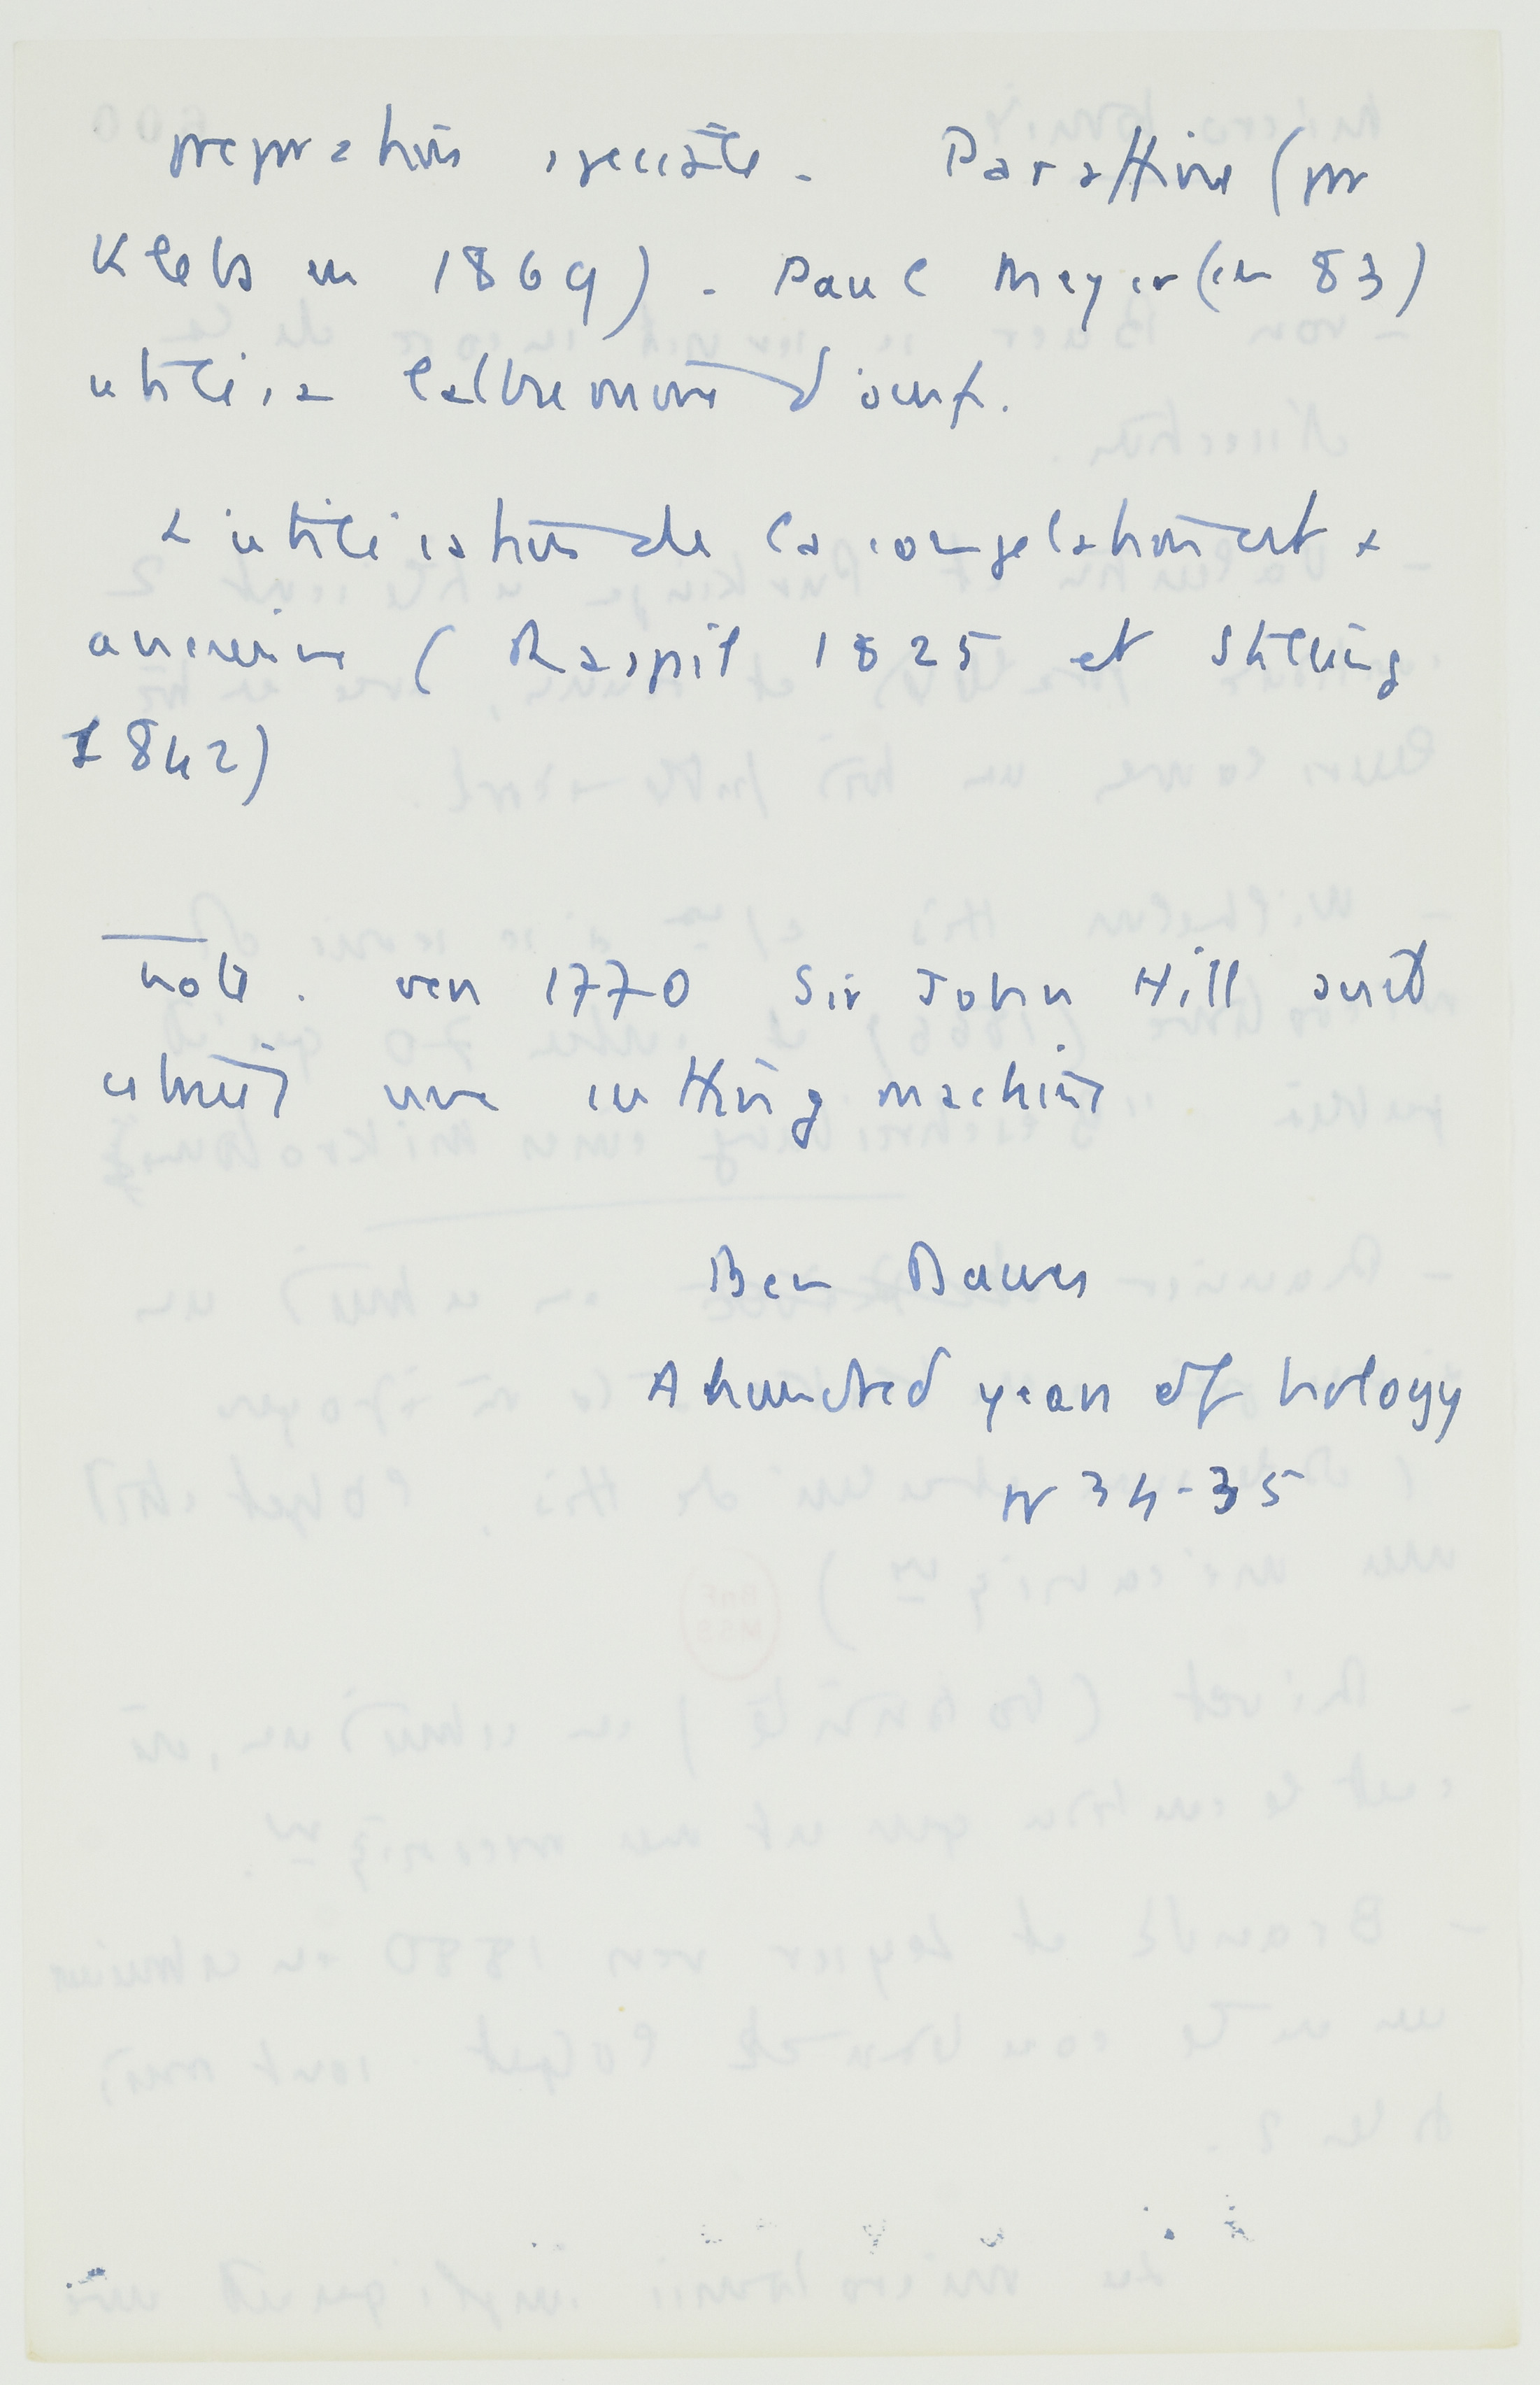 preparation speciale. Paraffine (par
Klebs en 1869). Paul Meyer (en 83)
utilisa l'albumine d'oeuf.
L'utilisation de la congelation est +
ancienne (Raspil 1825 et Stilling
1842)
note. vers 1770 Sir John Hill avait
construit une cutting machine
Ben Dawes
A hundred years of biology
p 34-35